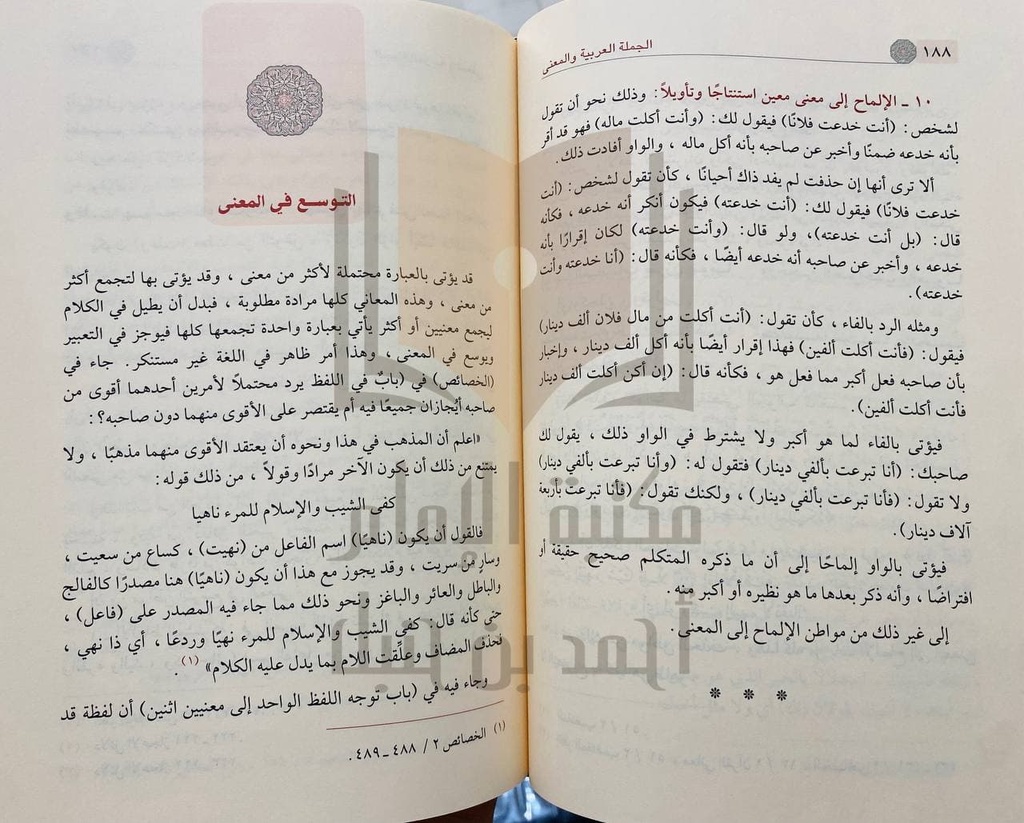 ١٨٨
الجملة العربية والمعنى
١٠ ـ الإلماح إلى معنى معين استنتاجًا وتأويلاً: وذلك نحو أن تقول
لشخص: (أنت خدعت فلانًا) فيقول لك: (وأنت أكلت ماله) فهو قد أقر
بأنه خدعه ضمنًا وأخبر عن صاحبه بأنه أكل ماله ، والواو أفادت ذلك.
ألا ترى أنها إن حذفت لم يفد ذاك أحيانًا ، كأن تقول لشخص: (أنت
خدعت فلانًا) فيقول لك: (أنت خدعته) فيكون أنكر أنه خدعه ، فكأنه
قال: (بل أنت خدعته)، ولو قال: (وأنت خدعته) لكان إقرارًا بأنه
خدعه ، وأخبر عن صاحبه أنه خدعه أيضًا ، فكأنه قال: (أنا خدعته وأنت
خدعته).
ومثله الرد بالفاء ، كأن تقول: (أنت أكلت من مال فلان ألف دينار)
فيقول: (فأنت أكلت ألفين) فهذا إقرار أيضًا بأنه أكل ألف دينار ، وإخبار
بأن صاحبه فعل أكبر مما فعل هو ، فكأنه قال: (إن أكن أكلت ألف دينار
فأنت أكلت ألفين).
فيؤتى بالفاء لما هو أكبر ولا يشترط في الواو ذلك ، يقول لك
صاحبك: (أنا تبرعت بألفي دينار) فتقول له: (وأنا تبرعت بألفي دينار)
ولا تقول: (فأنا تبرعت بألفي دينار) ، ولكنك تقول: (فأنا تبرعت بأربعة
آلاف دينار).
فيؤتى بالواو إلماحًا إلى أن ما ذكره المتكلم صحيح حقيقة أو
افتراضًا ، وأنه ذكر بعدها ما هو نظيره أو أكبر منه .
إلى غير ذلك من مواطن الإلماح إلى المعنى.
* * *
التوسع في المعنى
قد يؤتى بالعبارة محتملة لأكثر من معنى ، وقد يؤتى بها لتجمع أكثر
من معنى ، وهذه المعاني كلها مرادة مطلوبة ، فبدل أن يطيل في الكلام
ليجمع معنيين أو أكثر يأتي بعبارة واحدة تجمعها كلها فيوجز في التعبير
ويوسع في المعنى ، وهذا أمر ظاهر في اللغة غير مستنكر. جاء في
(الخصائص) في (بابٌ في اللفظ يرد محتملاً لأمرين أحدهما أقوى من
صاحبه أيُجازان جميعًا فيه أم يقتصر على الأقوى منهما دون صاحبه؟:
«اعلم أن المذهب في هذا ونحوه أن يعتقد الأقوى منهما مذهبًا ، ولا
يمتنع من ذلك أن يكون الآخر مرادًا وقولاً ، من ذلك قوله:
كفى الشيب والإسلام للمرء ناهيا
فالقول أن يكون (ناهيًا) اسم الفاعل من (نهيت) ، كساع من سعيت ،
وسارٍ من سريت ، وقد يجوز مع هذا أن يكون (ناهيًا) هنا مصدرًا كالفالج
والباطل والعائر والباغز ونحو ذلك مما جاء فيه المصدر على (فاعل) ،
حتى كأنه قال: كفى الشيب والإسلام للمرء نهيًا وردعًا ، أي ذا نهي ،
فحذف المضاف وعلّقت اللام بما يدل عليه الكلام» (١) .
وجاء فيه في (باب توجه اللفظ الواحد إلى معنيين اثنين) أن لفظة قد
(١) الخصائص ٢ / ٤٨٨ ـ ٤٨٩ .
مكتبة الإمام
أحمد بن حنبل